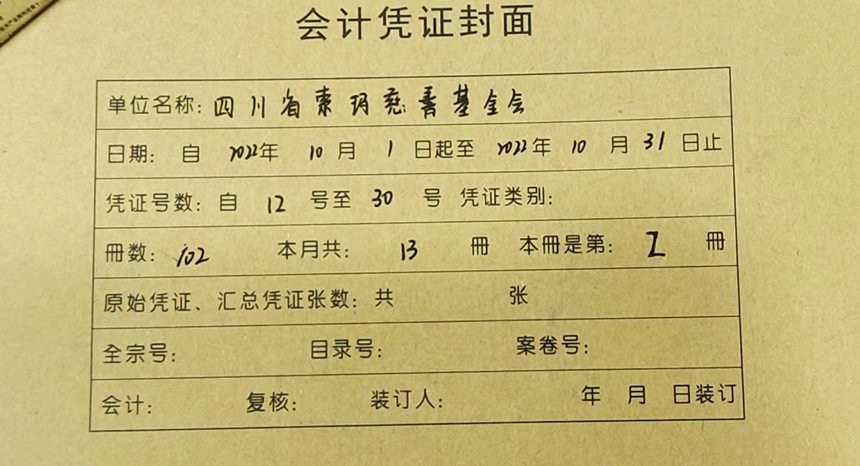 会计凭证封面
单位名称: 四川省索玛慈善基金会
日期: 自 2022年 10月 1日起至 2022年 10月 31日止
凭证号数: 自 12 号至 30 号 凭证类别:
冊数: 102 本月共: 13 冊 本冊是第: 2 冊
原始凭证、汇总凭证张数: 共 张
全宗号: 目录号: 案卷号:
会计: 复核: 装订人: 年 月 日装订